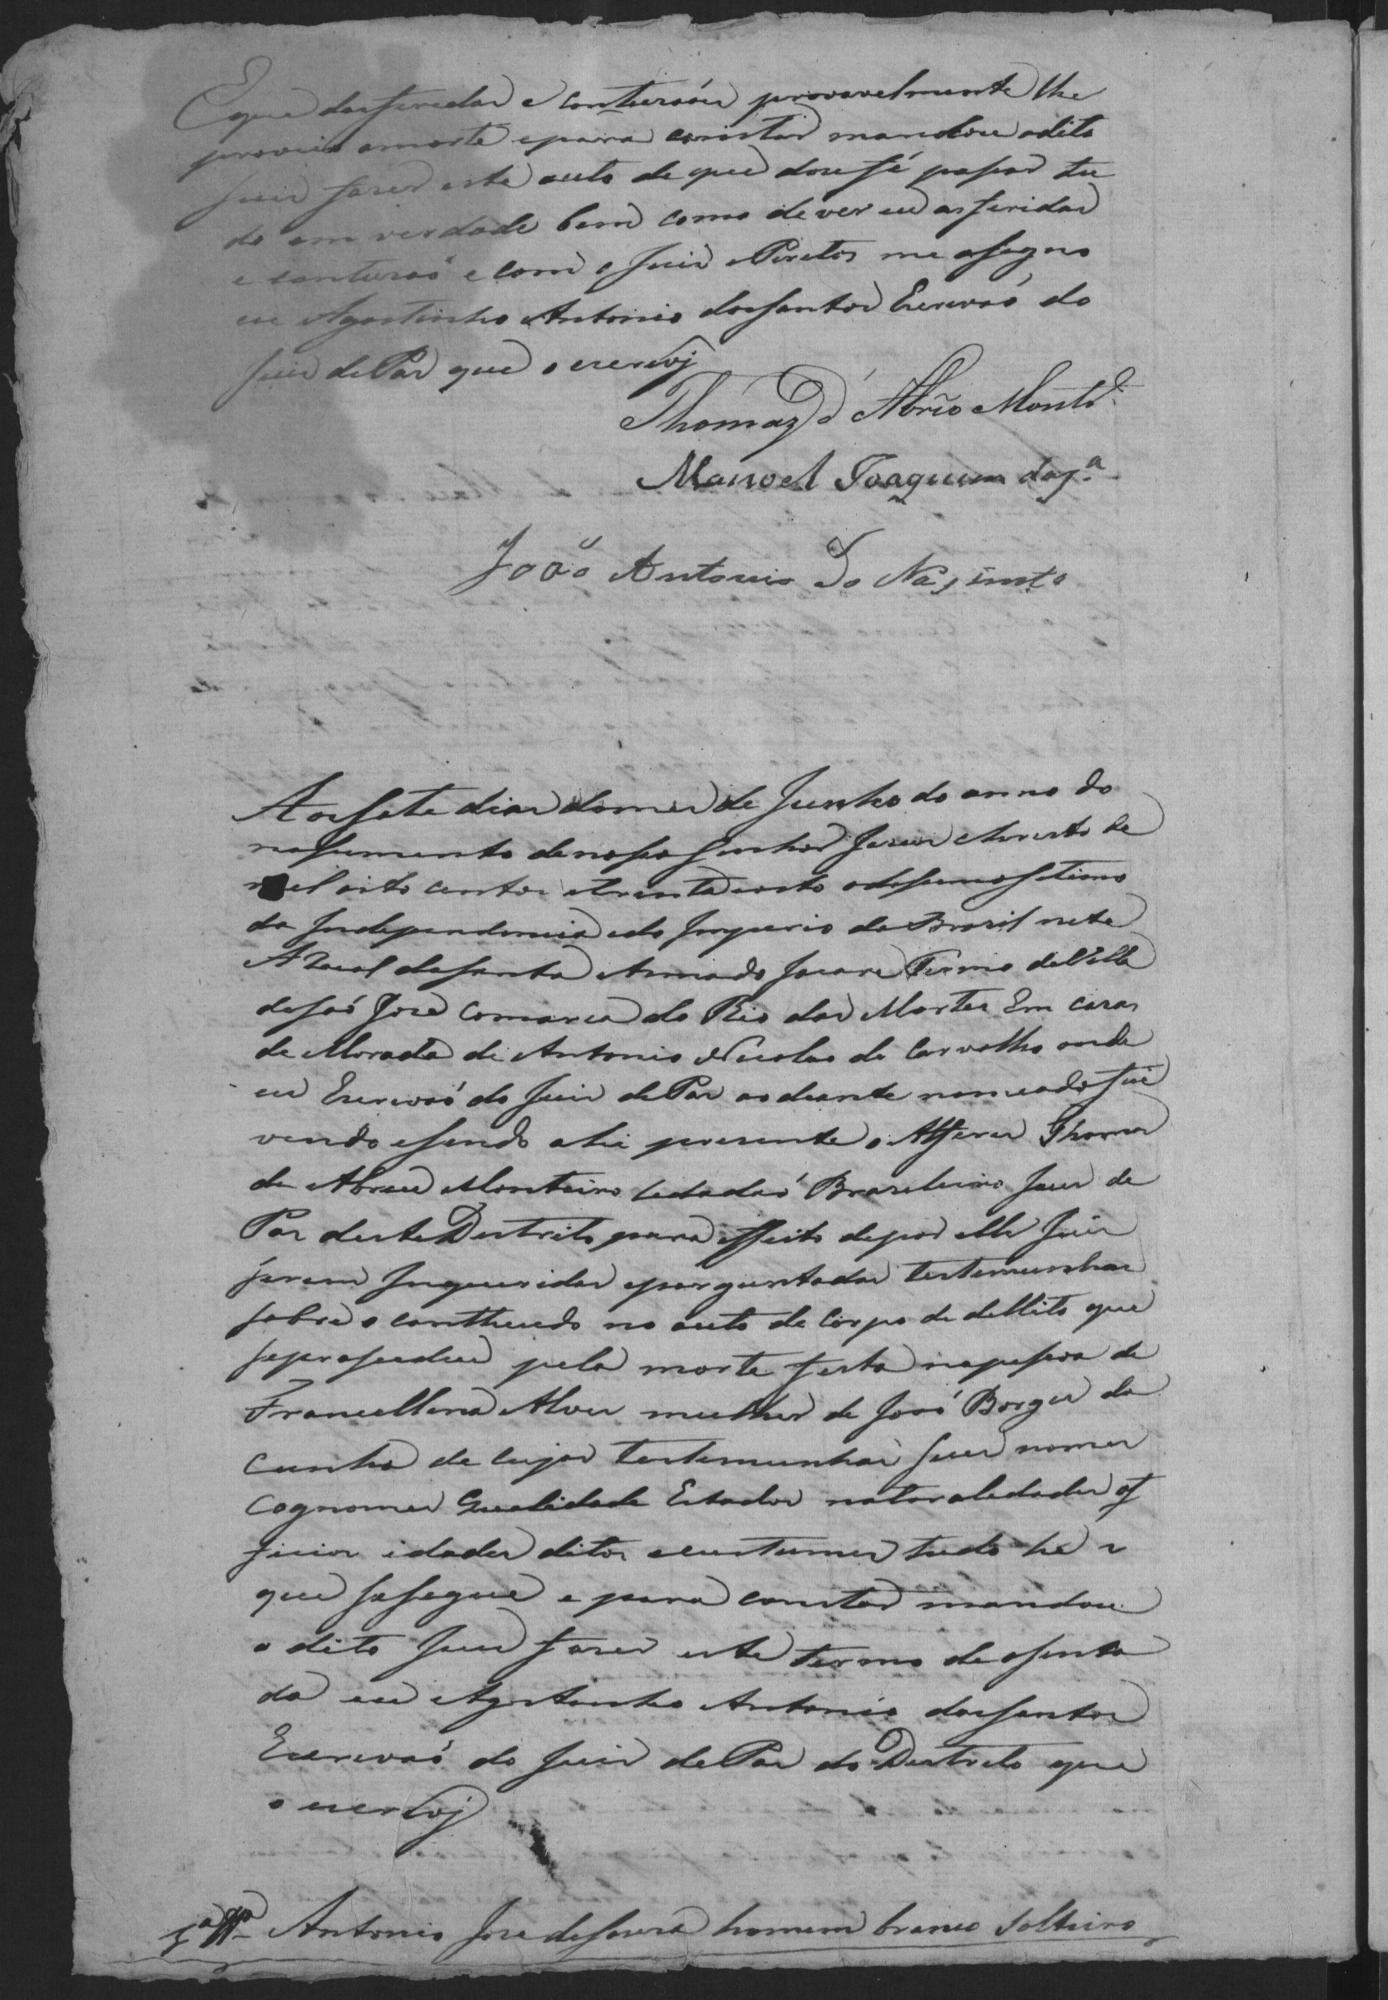 E que das feridas e contusões provavelmente lhe
proveio a morte e para constar mandou o dito
Juis faser este auto de que dou fé pasar tu
do em verdade bem como de ver eu as feridas
e contusaõ e com o Juis e Peretos me asegno
eu Agostinho Antonio dos Santos Escrivaõ do
Juis de Pas que o escrevj
Thomaz d' Abrẽo Montr.º
Manoel Joaquim da S.ª
João Antonio do Nasimto
Aos sete dias do mes de Junho do anno do
nasimento de noso Senhor Jesus Christo de
mil oito centos e trinta e oito o desimo setimo
da Independencia e do Imperio do Brasil neste
ARaial de Santa Anna do Jacare Termo da Villa
de Saõ Jose Comarca do Rio das Mortes Em casas
de Morada de Antonio Nicolao de Carvalho onde
eu Escrivaõ do Juis de Pas ao deante nomeado fui
vindo e sendo ahi presente o Alferes Thomas
de Abreu Monteiro Cidadaõ Brasileiro Jues de
Pas deste Destrito para effeito de por elle Juis
serem Inqueridas e perguntadas testemunhas
sobre o conthiudo no auto de Corpo de dellito que
se prosedeu pela morte feita na pesoa de
Francellena Alves mulher de José Borges da
Cunha de cujas testemunhas seus nomes
Cognomes Qualidade Estados naturaledades of
ficios idades ditos e custumes tudo he o
que se segue e para constar mandou
o dito Jues faser este termo de asenta
da eu Agostinho Antonio dos Santos
Escrivaõ do Juis de Pas do Destrito que
o escrevj
1ª Ttª Antonio Jose de Sousa homem branco Solteiro